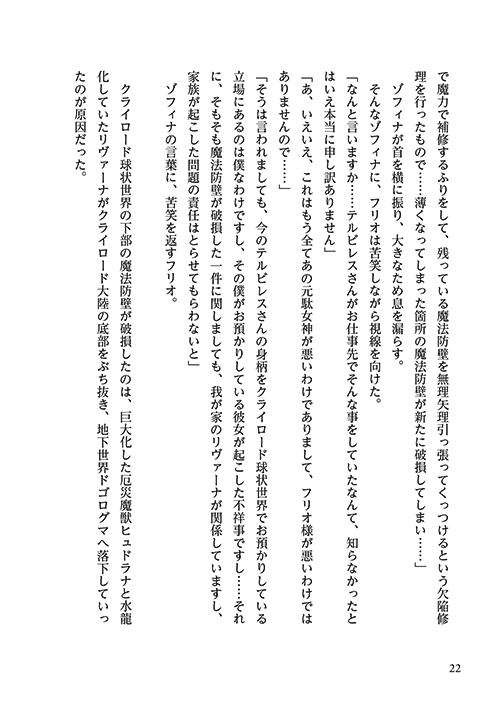 で魔力で補修するふりをして、残っている魔法防壁を無理矢理引っ張ってくっつけるという欠陥修
理を行ったもので……薄くなってしまった箇所の魔法防壁が新たに破損してしまい……」
ゾフィナが首を横に振り、大きなため息を漏らす。
そんなゾフィナに、フリオは苦笑しながら視線を向けた。
「なんと言いますか……テルビレスさんがお仕事先でそんな事をしていたなんて、知らなかったと
はいえ本当に申し訳ありません」
「あ、いえいえ、これはもう全てあの元駄女神が悪いわけでありまして、フリオ様が悪いわけでは
ありませんので……」
「そうは言われましても、今のテルビレスさんの身柄をクライロード球状世界でお預かりしている
立場にあるのは僕なわけですし、その僕がお預かりしている彼女が起こした不祥事ですし……それ
に、そもそも魔法防壁が破損した一件に関しましても、我が家のリヴァーナが関係していますし、
家族が起こした問題の責任はとらせてもらわないと」
ゾフィナの言葉に、苦笑を返すフリオ。
クライロード球状世界の下部の魔法防壁が破損したのは、巨大化した厄災魔獣ヒュドラナと水龍
化していたリヴァーナがクライロード大陸の底部をぶち抜き、地下世界ドゴログマへ落下していっ
たのが原因だった。
22